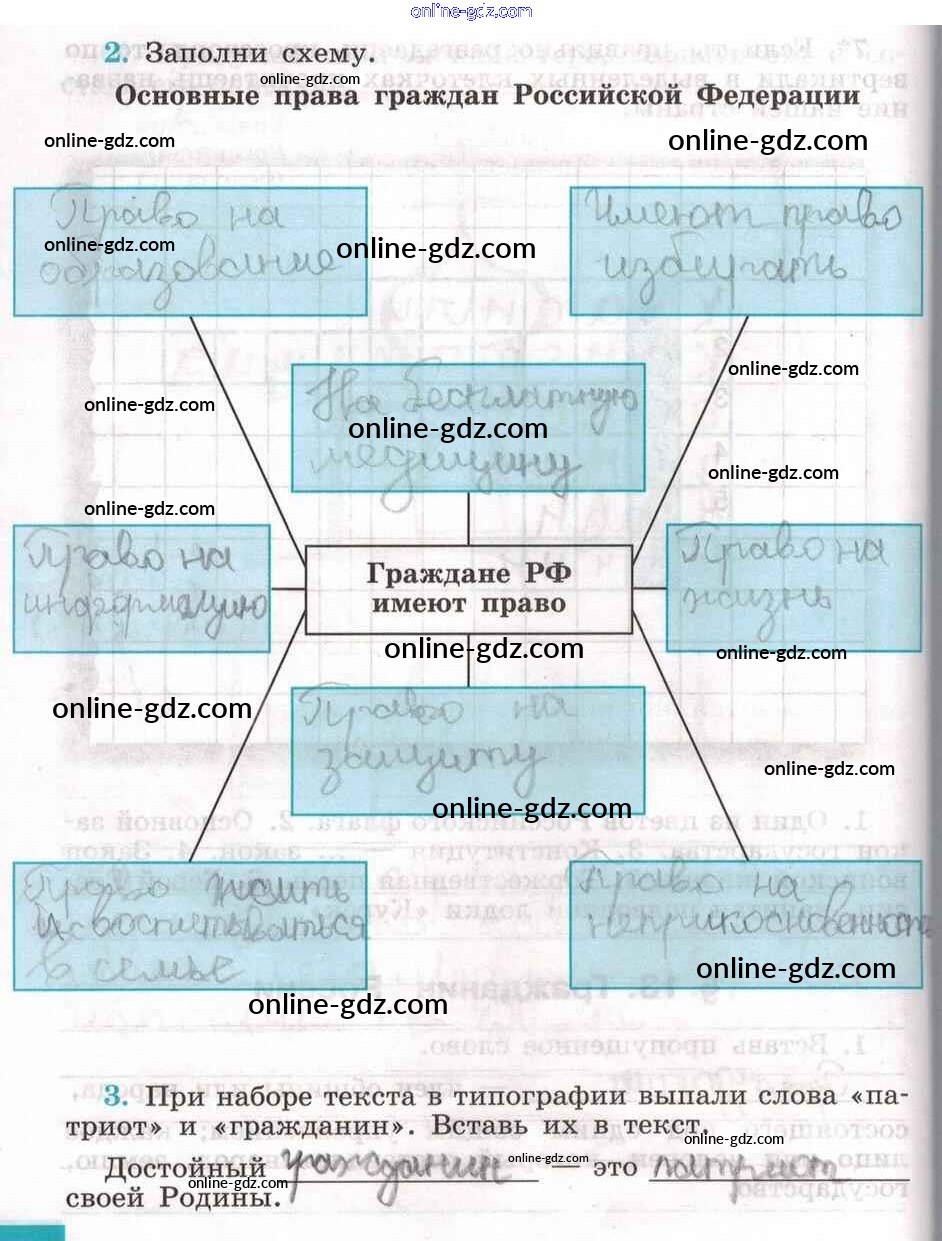 online-gdz.com
2. Заполни схему.
online-gdz.com
Основные права граждан Российской Федерации
online-gdz.com
online-gdz.com
Право на
образование
online-gdz.com
online-gdz.com
Имеют право
избирать
online-gdz.com
online-gdz.com
На бесплатную
медицину
online-gdz.com
online-gdz.com
online-gdz.com
Право на
информацию
Граждане РФ
имеют право
Право на
жизнь
online-gdz.com
online-gdz.com
online-gdz.com
Право на
защиту
online-gdz.com
online-gdz.com
Право жить
и воспитываться
в семье
Право на
неприкосновенность
online-gdz.com
online-gdz.com
3. При наборе текста в типографии выпали слова «па-
триот» и «гражданин». Вставь их в текст.
online-gdz.com
Достойный гражданин — это патриот
online-gdz.com
своей Родины.
online-gdz.com